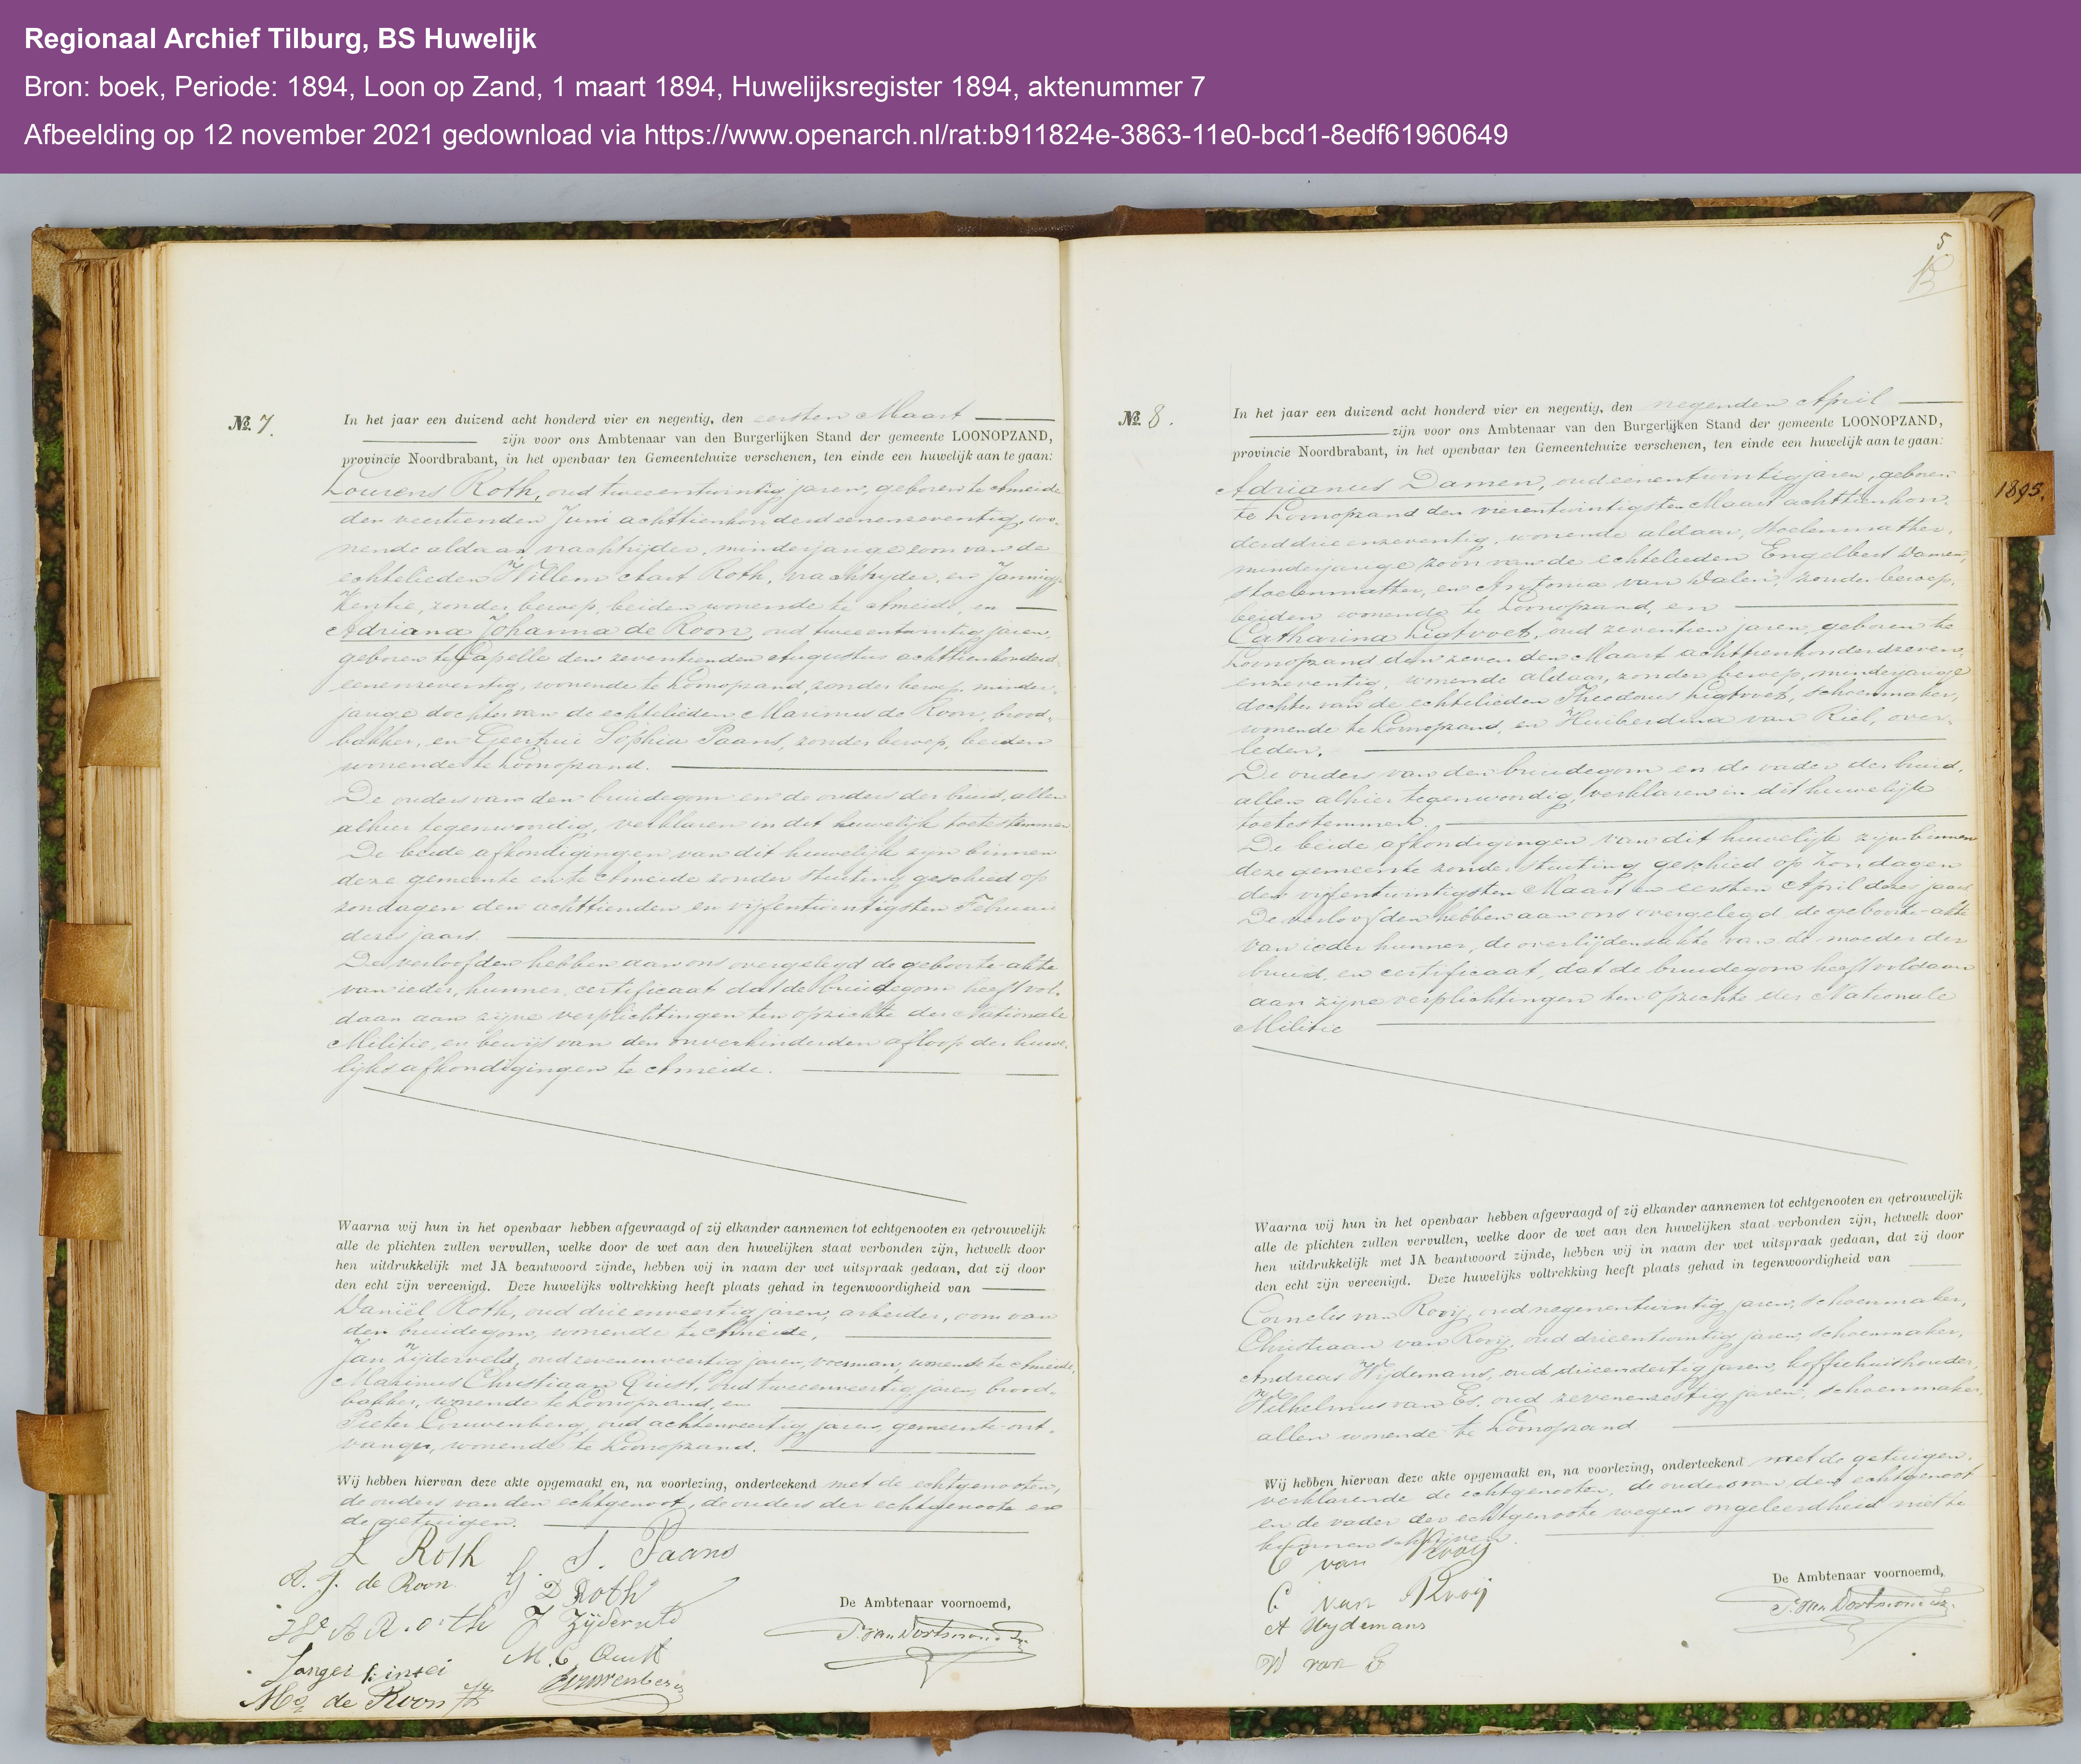 Regionaal Archief Tilburg, BS Huwelijk
Bron: boek, Periode: 1894, Loon op Zand, 1 maart 1894, Huwelijksregister 1894, aktenummer 7
Afbeelding op 12 november 2021 gedownload via https://www.openarch.nl/rat:b911824e-3863-11e0-bcd1-8edf61960649
№. 7.
In het jaar een duizend acht honderd vier en negentig, den eersten Maart
zijn voor ons Ambtenaar van den Burgerlijken Stand der gemeente LOONOPZAND,
provincie Noordbrabant, in het openbaar ten Gemeentehuize verschenen, ten einde een huwelijk aan te gaan:
Lourens Roth, oud tweeentwintig jaren, geboren te Ameide
den veertienden Juni achttienhonderdeenenzeventig, wo-
nende aldaar, vrachtrijder, minderjarige zoon van de
echtelieden Willem Aart Roth, vrachtrijder, en Jannigje
Kentie, zonder beroep, beiden wonende te Ameide, en
Adriana Johanna de Roon, oud tweeentwintig jaren,
geboren te Capelle den zeventienden Augustus achttienhonderd
eenenzeventig, wonende te Loonopzand, zonder beroep, minder-
jarige dochter van de echtelieden Marinus de Roon, brood-
bakker, en Geertrui Sophia Paans, zonder beroep, beiden
wonende te Loonopzand.
De ouders van den bruidegom en de ouders der bruid, allen
alhier tegenwoordig, verklaren in dit huwelijk toetestemmen
De beide afkondigingen van dit huwelijk zijn binnen
deze gemeente en te Ameide zonder stuiting geschied op
zondagen den achttienden en vijfentwintigsten Februari
dezes jaars.
De verloofden hebben aan ons overgelegd de geboorte-akte
van ieder hunner, certificaat dat de bruidegom heeft vol-
daan aan zijne verplichtingen ten opzichte der Nationale
Militie, en bewijs van den onverhinderden afloop der huwe-
lijks afkondigingen te Ameide.
Waarna wij hun in het openbaar hebben afgevraagd of zij elkander aannemen tot echtgenooten en getrouwelijk
alle de plichten zullen vervullen, welke door de wet aan den huwelijken staat verbonden zijn, hetwelk door
hen uitdrukkelijk met JA beantwoord zijnde, hebben wij in naam der wet uitspraak gedaan, dat zij door
den echt zijn vereenigd. Deze huwelijks voltrekking heeft plaats gehad in tegenwoordigheid van
Daniël Roth, oud drieenveertig jaren, arbeider, oom van
den bruidegom, wonende te Ameide,
Jan Zijderveld, oud zevenenveertig jaren, voerman, wonende te Ameide,
Marinus Christiaan Quist, oud tweeenveertig jaren, brood-
bakker, wonende te Loonopzand, en
Peeter Couwenberg, oud achtenveertig jaren, gemeente-ont-
vanger, wonende te Loonopzand.
Wij hebben hiervan deze akte opgemaakt en, na voorlezing, onderteekend met de echtgenooten,
de ouders van den echtgenoot, de ouders der echtgenoote en
de getuigen.
L Roth
A. J. de Roon
G. S. Paans
D Roth
W A Roth
J Zijderveld
M. C. Quist
Couwenberg
Ms de Roon
De Ambtenaar voornoemd,
P. van Dortmond
5
1895.
№. 8.
In het jaar een duizend acht honderd vier en negentig, den negenden April
zijn voor ons Ambtenaar van den Burgerlijken Stand der gemeente LOONOPZAND,
provincie Noordbrabant, in het openbaar ten Gemeentehuize verschenen, ten einde een huwelijk aan te gaan:
Adrianus Damen, oud eenentwintig jaren, geboren
te Loonopzand den vierentwintigsten Maart achttienhon-
derd drieenzeventig, wonende aldaar, stoelenmatter,
minderjarige zoon van de echtelieden Engelbert Damen,
stoelenmatter, en Antonia van Dalen, zonder beroep,
beiden wonende te Loonopzand, en
Catharina Ligtvoet, oud zeventien jaren, geboren te
Loonopzand den zevenden Maart achttienhonderdzeven-
enzeventig, wonende aldaar, zonder beroep, minderjarige
dochter van de echtelieden Theodorus Ligtvoet, schoenmaker,
wonende te Loonopzand, en Huiberdina van Riel, over-
leden.
De ouders van den bruidegom en de vader der bruid,
allen alhier tegenwoordig, verklaren in dit huwelijk
toetestemmen.
De beide afkondigingen van dit huwelijk zijn binnen
deze gemeente zonder stuiting geschied op zondagen
den vijfentwintigsten Maart en eersten April dezes jaars
De verloofden hebben aan ons overgelegd de geboorte-akte
van ieder hunner, de overlijdensakte van de moeder der
bruid, en certificaat, dat de bruidegom heeft voldaan
aan zijne verplichtingen ten opzichte der Nationale
Militie
Waarna wij hun in het openbaar hebben afgevraagd of zij elkander aannemen tot echtgenooten en getrouwelijk
alle de plichten zullen vervullen, welke door de wet aan den huwelijken staat verbonden zijn, hetwelk door
hen uitdrukkelijk met JA beantwoord zijnde, hebben wij in naam der wet uitspraak gedaan, dat zij door
den echt zijn vereenigd. Deze huwelijks voltrekking heeft plaats gehad in tegenwoordigheid van
Cornelis van Rooij, oud negenentwintig jaren, schoenmaker,
Christiaan van Rooij, oud drieentwintig jaren, schoenmaker,
Andreas Wijdemans, oud drieendertig jaren, koffiehuishouder,
Wilhelmus van Es, oud zevenenzestig jaren, schoenmaker,
allen wonende te Loonopzand
Wij hebben hiervan deze akte opgemaakt en, na voorlezing, onderteekend met de getuigen,
verklarende de echtgenooten, de ouders van den echtgenoot
en de vader der echtgenoote wegens ongeleerdheid niet te
kunnen schrijven.
C van Rooij
C van Rooij
A Wijdemans
W van E
De Ambtenaar voornoemd,
P. van Dortmond